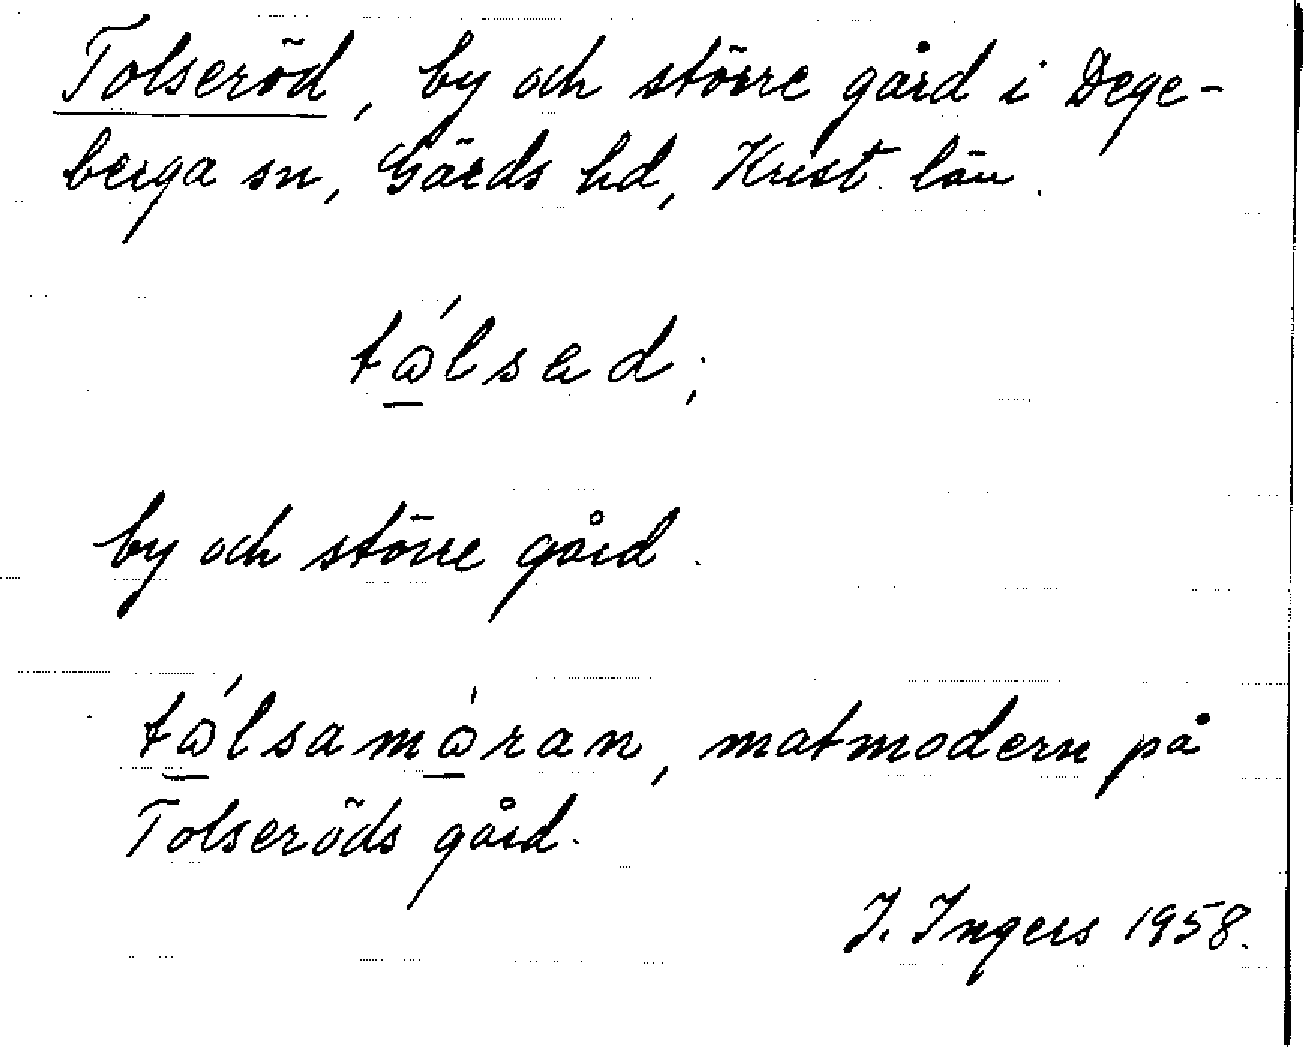 Tolseröd, by och större gård i Dege-
berga sn, Gärds hd, Krist. län.
tólsad;
by och större gård.
tólsamóran, matmodern på
Tolseröds gård.
J. Ingers 1958.